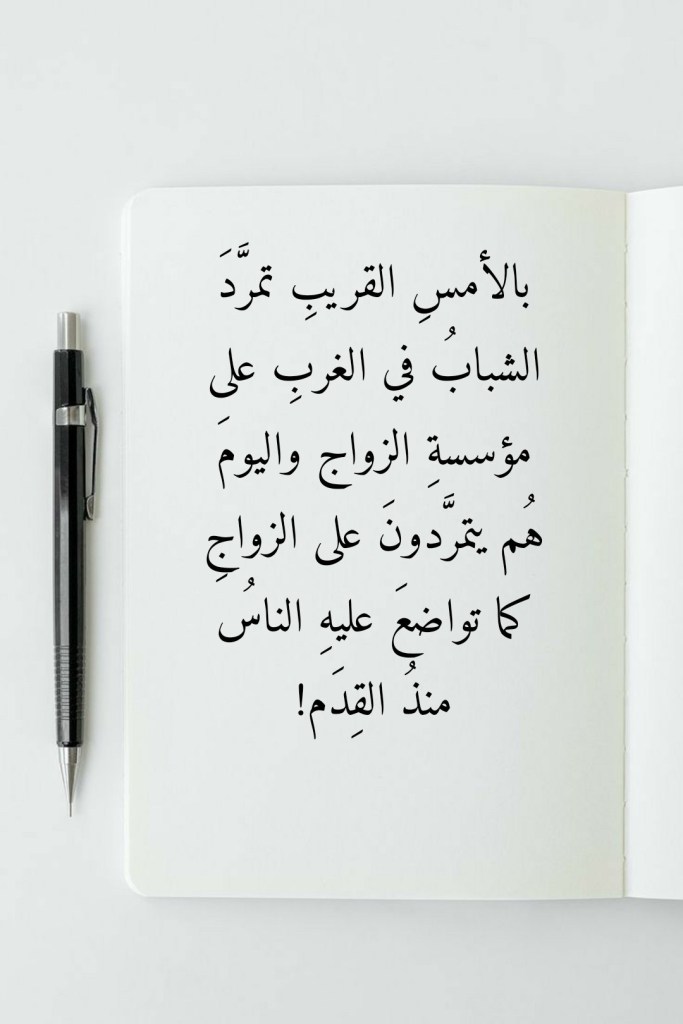 بالأمسِ القريبِ تمرَّدَ
الشبابُ في الغربِ على
مؤسسةِ الزواج واليومَ
هُم يتمرَّدونَ على الزواجِ
كما تواضعَ عليهِ الناسُ
منذُ القِدَم!